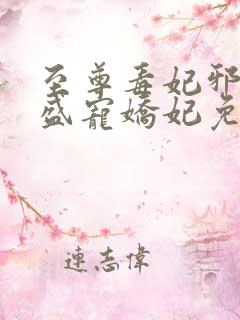 至尊毒妃邪
盛寵嬌妃免
連志偉